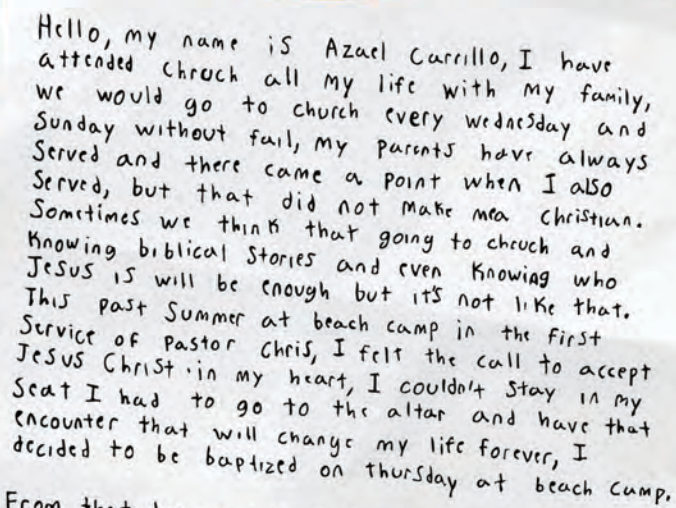 Hello, my name is Azael Carrillo, I have
attended chruch all my life with my family,
we would go to church every wednesday and
Sunday without fail, my parents have always
Served and there came a point when I also
Served, but that did not make mea Christian.
Sometimes we think that going to chruch and
Knowing biblical Stories and even Knowing who
Jesus is will be enough but it's not like that.
This past Summer at beach camp in the first
Service of Pastor Chris, I felt the call to accept
Jesus Christ in my heart, I couldn't stay in my
Seat I had to go to the altar and have that
encounter that will change my life forever, I
decided to be baptized on thursday at beach camp.
From that